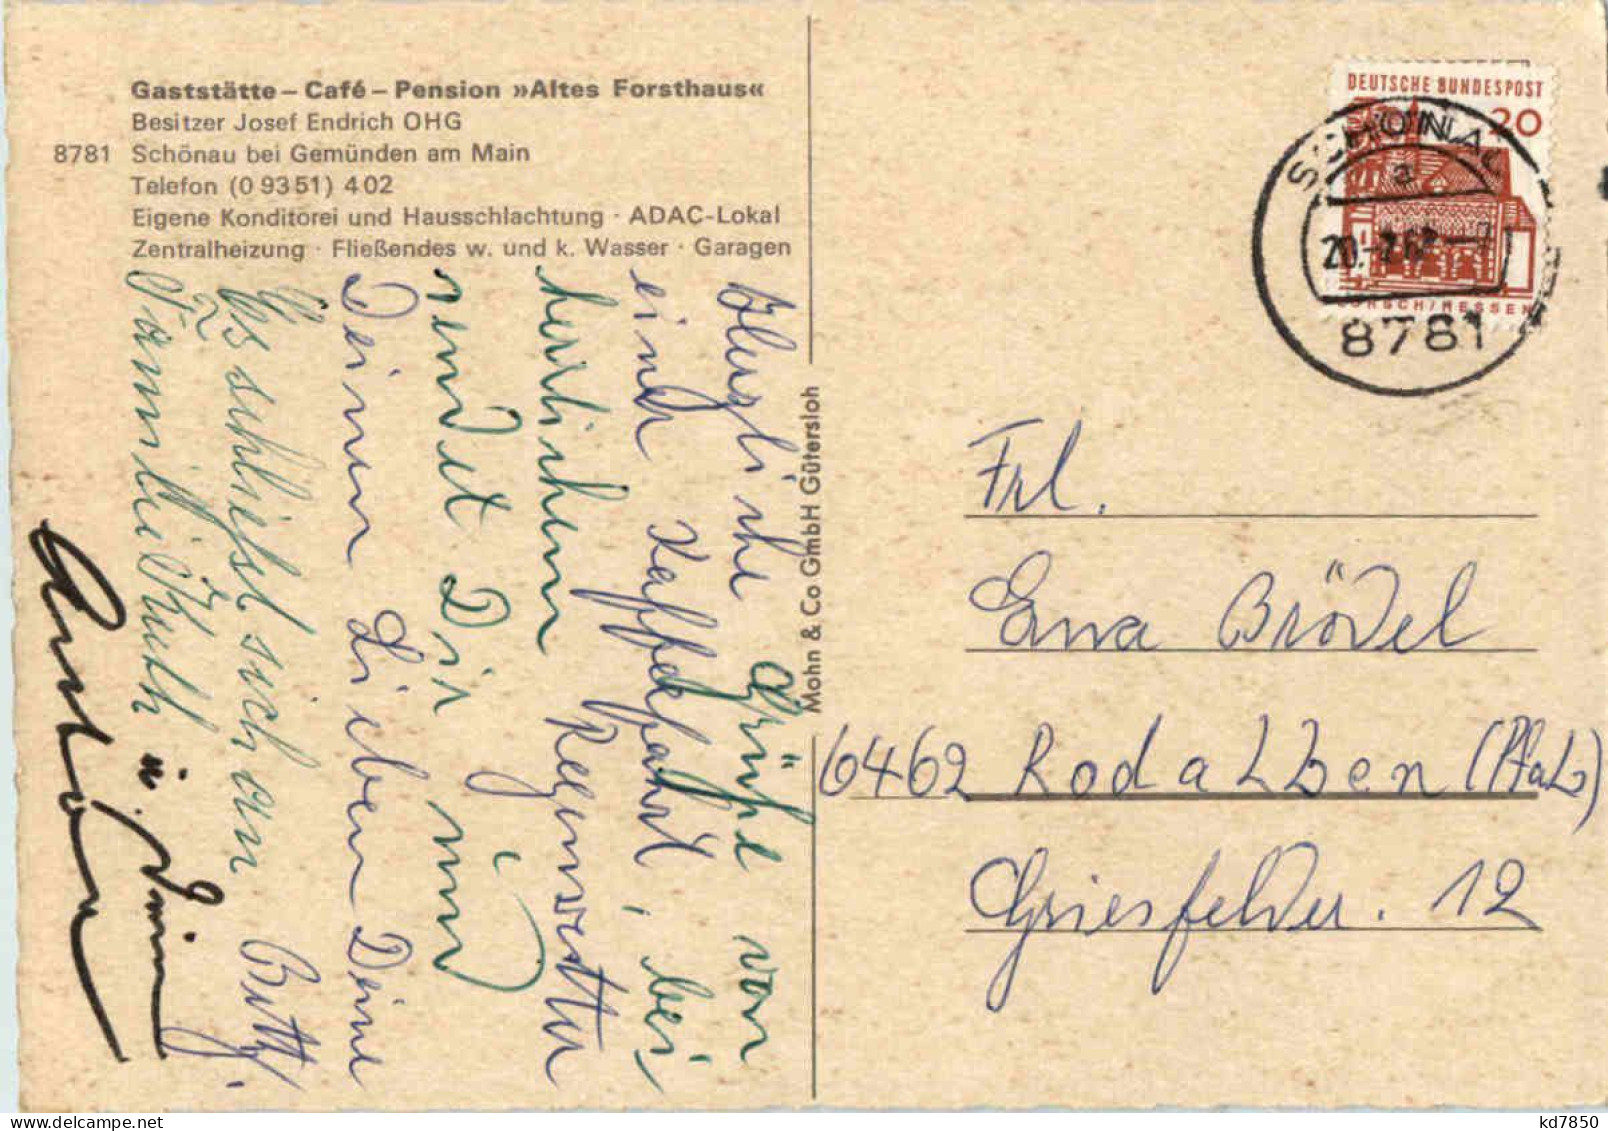 Gaststätte – Café – Pension »Altes Forsthaus«
Besitzer Josef Endrich OHG
8781 Schönau bei Gemünden am Main
Telefon (0 93 51) 4 02
Eigene Konditorei und Hausschlachtung · ADAC-Lokal
Zentralheizung · Fließendes w. und k. Wasser · Garagen
Grüße von
einer Kaffeefahrt, bei
herrlichem Regenwetter
sendet Dir
Deinen Lieben Deine
Es schließt sich an
Familie
Mohn & Co GmbH Gütersloh
DEUTSCHE BUNDESPOST
20
LORSCH/HESSEN
SCHÖNAU
a
8781
Frl.
Brödel
6462 Rodalben (Pfalz)
12
kd7850